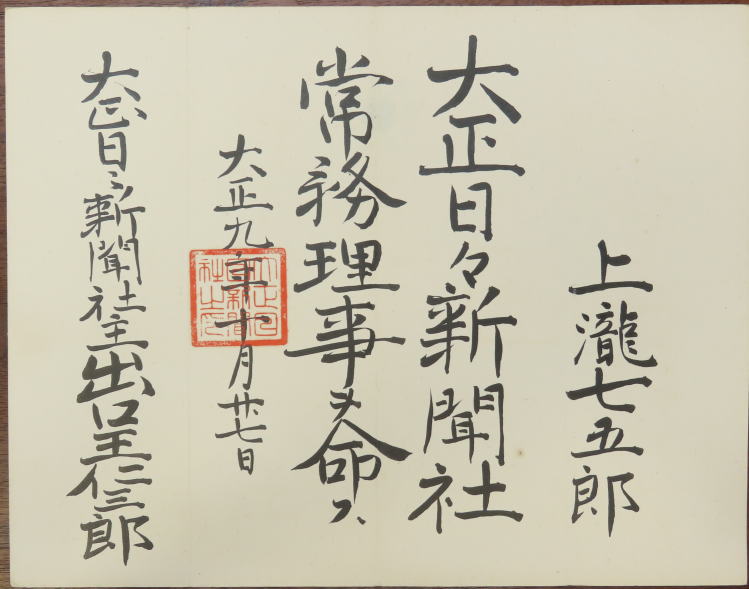 上瀧七五郎
大正日々新聞社
常務理事ヲ命ス
大正九年十月廿七日
大正日々新聞社主出口王仁三郎
大正日日新聞社之印